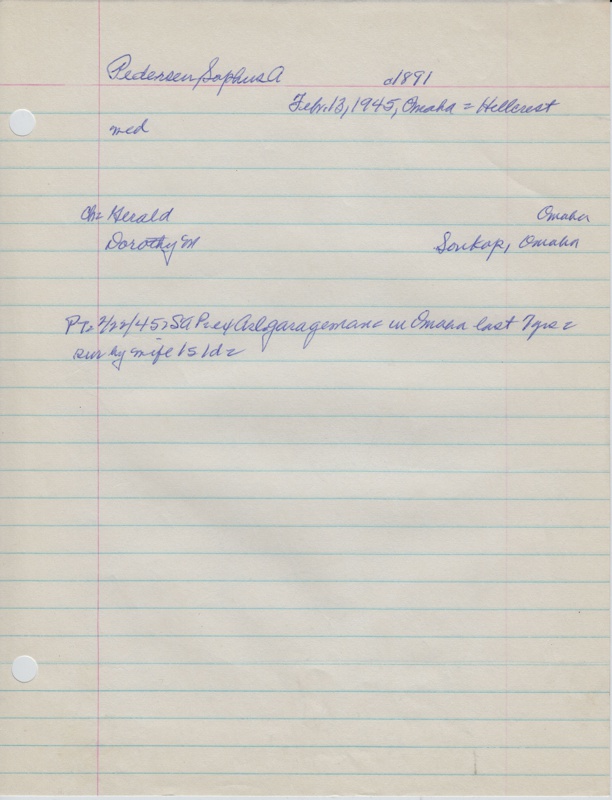 Pedersen, Sophus A c1891
Feb. 13, 1945, Omaha = Hillcrest
med
Ch= Herald Omaha
Dorothy M Soukop, Omaha
PT= 2/22/45: SAP=ex Arl garageman= in Omaha last 7 yrs=
sur by wife 1s 1d=